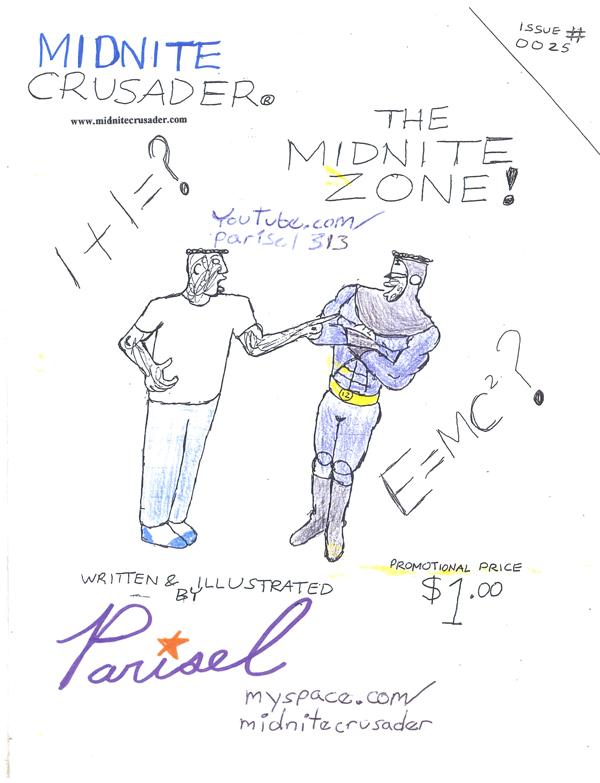 ISSUE #
0025
MIDNITE
CRUSADER®
www.midnitecrusader.com
THE
MIDNITE
ZONE!
1+1=?
YouTube.com/
parisel 313
E=MC²?
12
WRITTEN & ILLUSTRATED
BY
PROMOTIONAL PRICE
$1.00
Parisel
myspace.com/
midnitecrusader